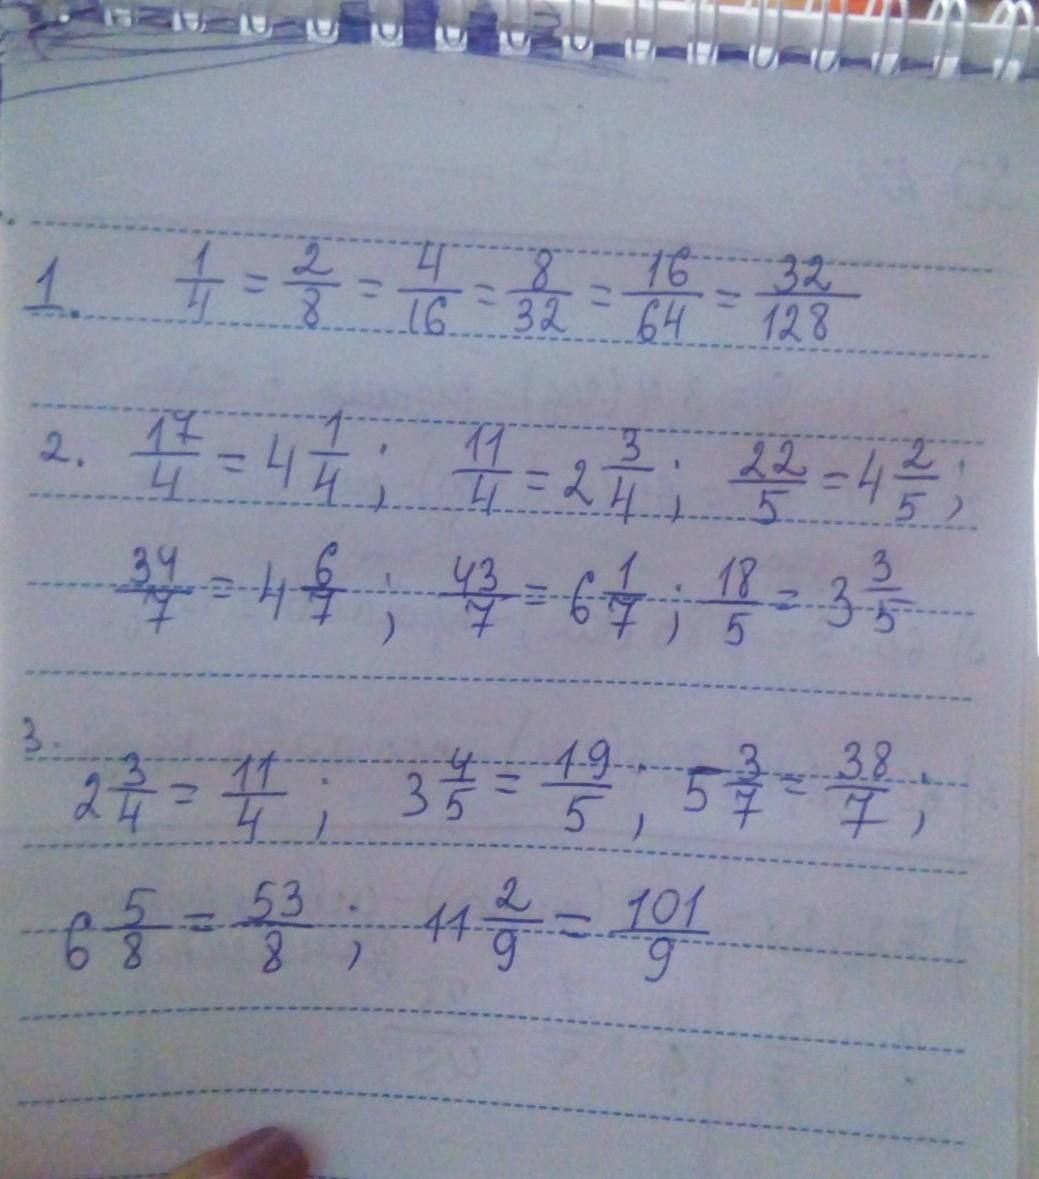 1. 1/4 = 2/8 = 4/16 = 8/32 = 16/64 = 32/128
2. 17/4 = 4 1/4; 11/4 = 2 3/4; 22/5 = 4 2/5;
34/7 = 4 6/7; 43/7 = 6 1/7; 18/5 = 3 3/5
3. 2 3/4 = 11/4; 3 4/5 = 19/5; 5 3/7 = 38/7;
6 5/8 = 53/8; 11 2/9 = 101/9